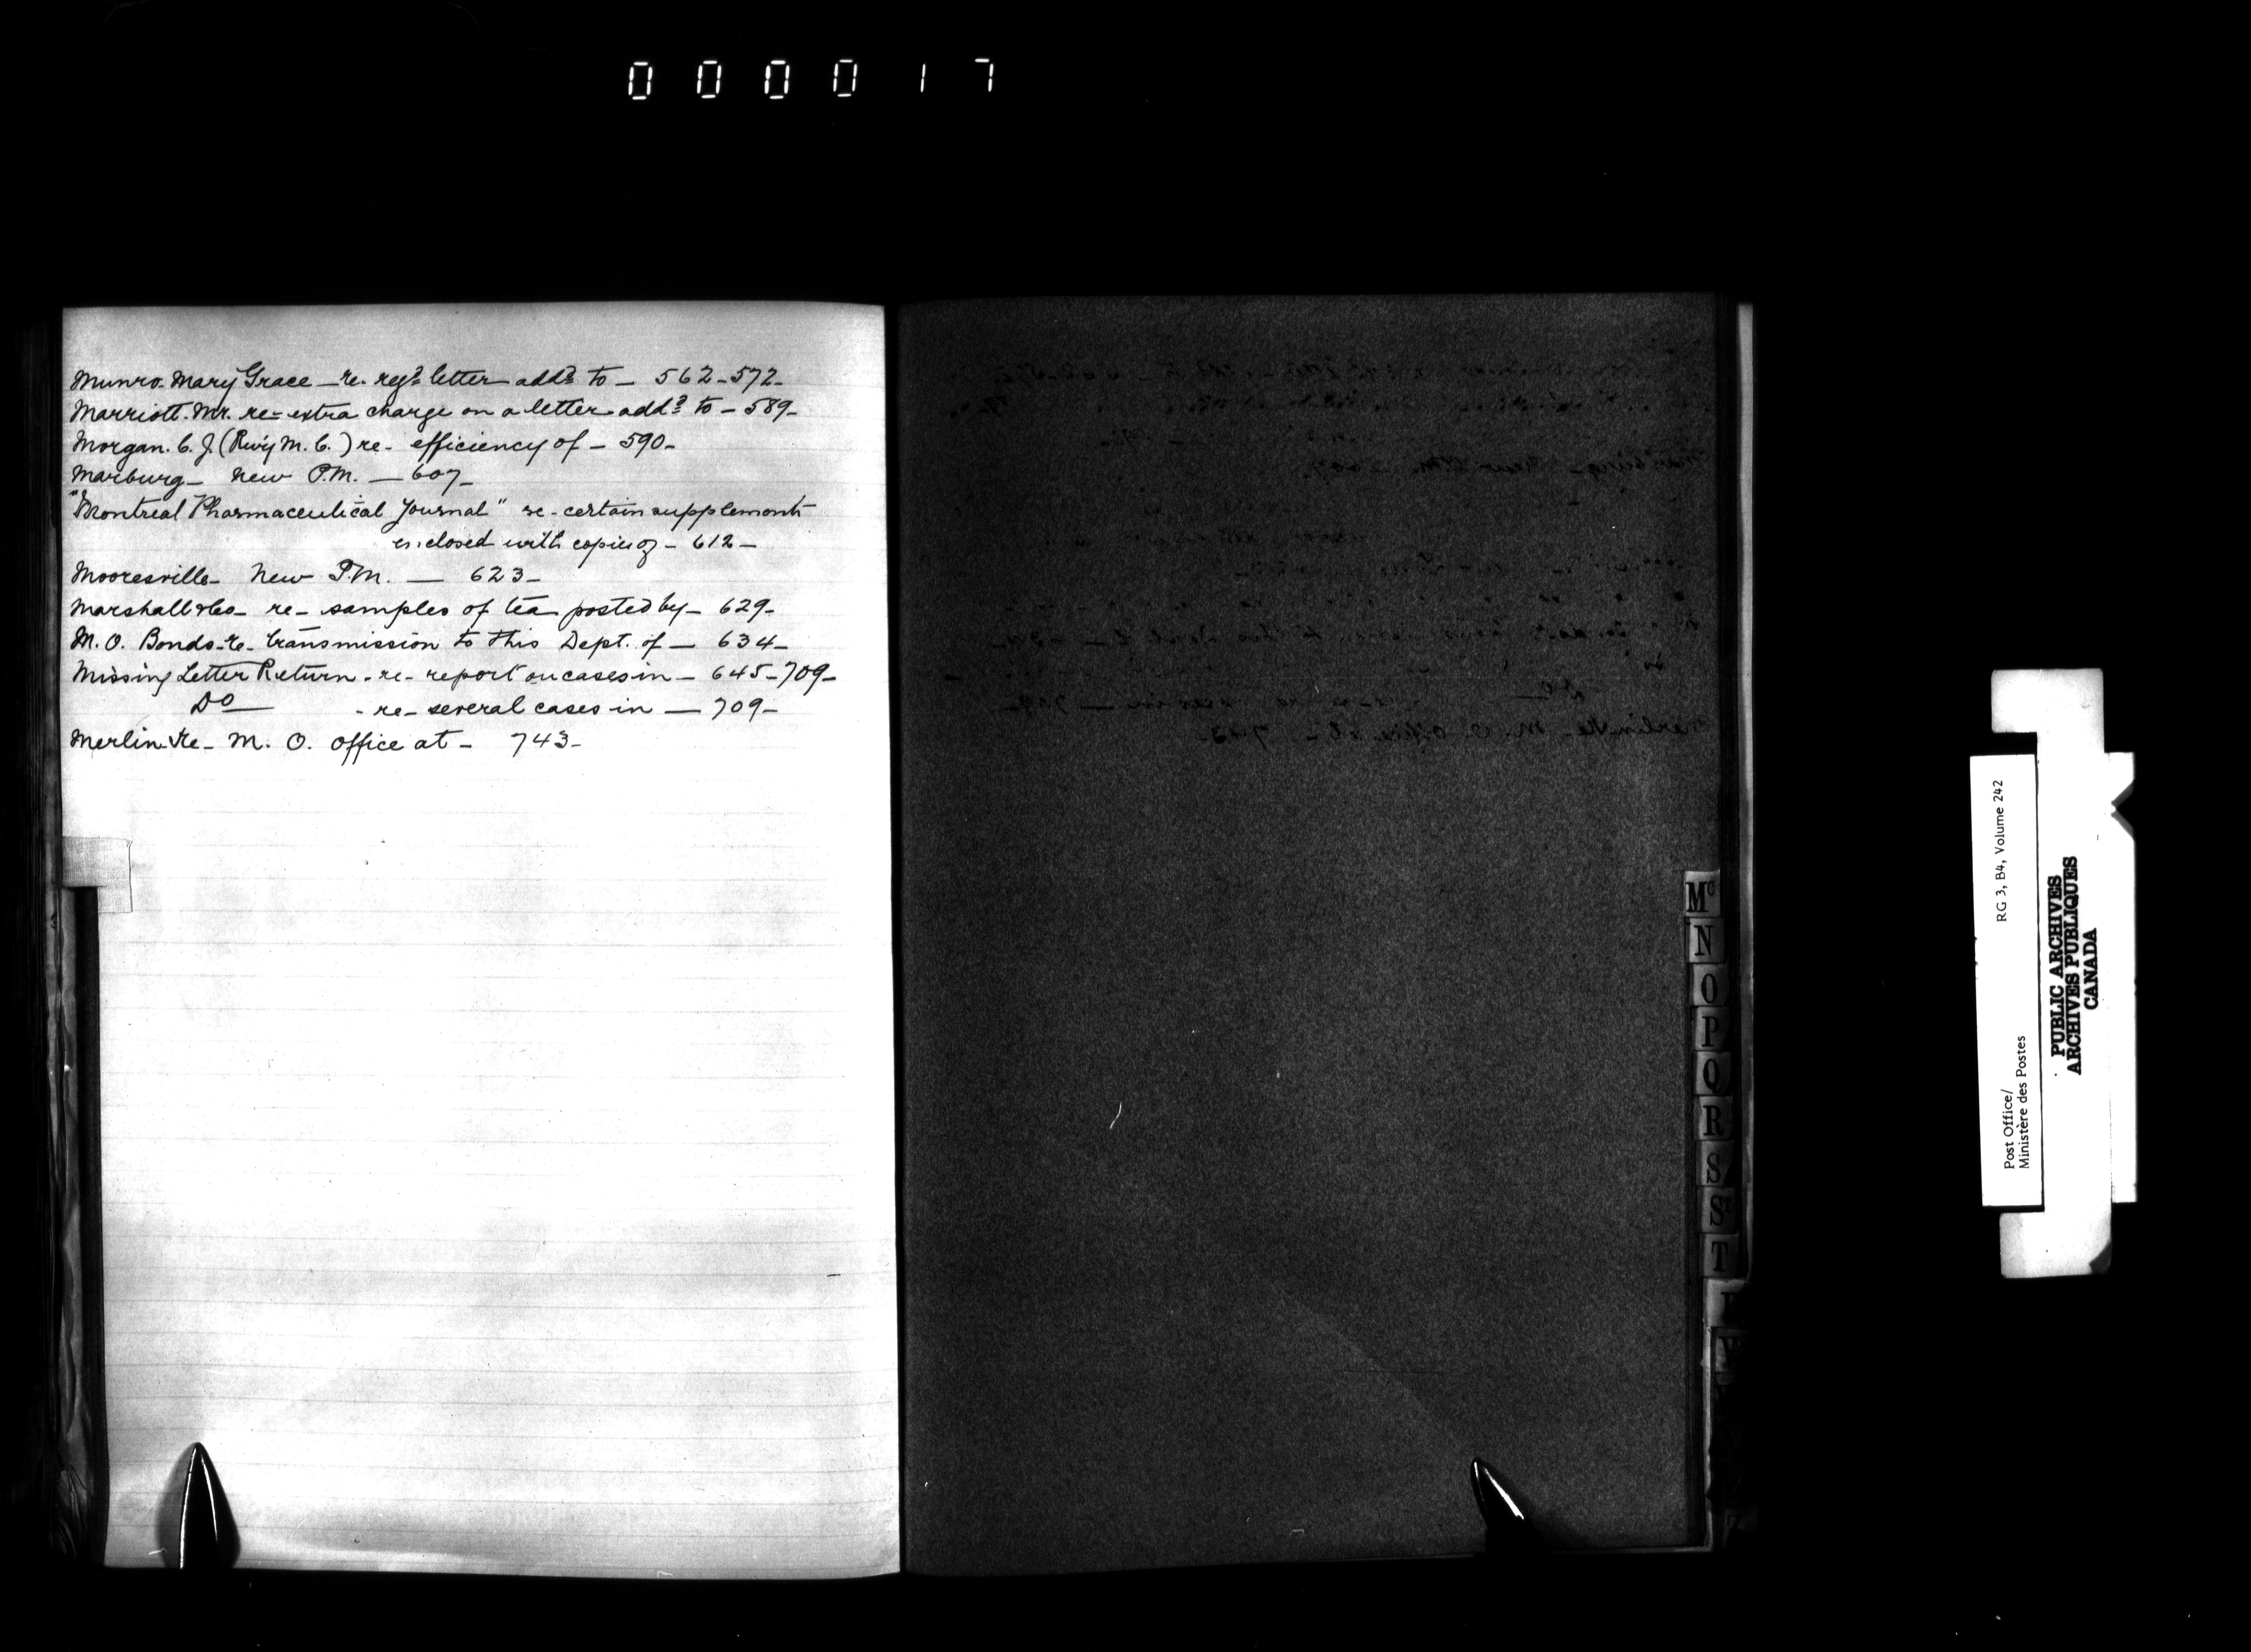 000017
Munro. Mary Grace — re. regd letter addd to — 562-572-
Marriott. Mr. re- extra charge on a letter addd to - 589-
Morgan. C. J. (Rwy M. C.) re- efficiency of - 590-
Marburg- new P.M. — 607-
"Montreal Pharmaceutical Journal" re-certain supplements
enclosed with copies of - 612-
Mooresville- new P.M. — 623-
Marshall & Co- re- samples of tea posted by- 629-
M. O. Bonds-re- transmission to this Dept. of — 634-
Missing Letter Return - re- report on cases in - 645-709-
Do - re- several cases in — 709-
Merlin-re- M. O. office at - 743-
Mc
N
O
P
Q
R
S
St
T
RG 3, B4, Volume 242
Post Office/
Ministère des Postes
PUBLIC ARCHIVES
ARCHIVES PUBLIQUES
CANADA